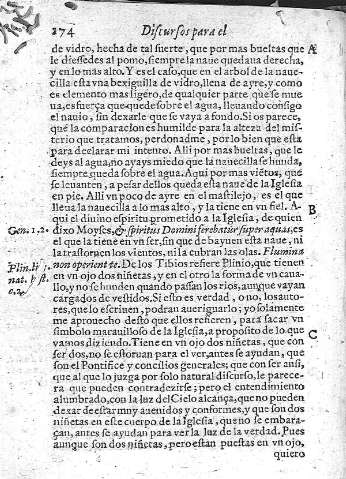 174 Discursos para el
de vidro, hecha de tal suerte, que por mas bueltas que A
le diessedes al pomo, siempre la naue quedaua derecha,
y en lo mas alto. Y es el caso, que en el arbol de la naue-
cilla estaua vna bexiguilla de vidro, llena de ayre, y como
es elemento mas ligero, de qualquier parte que se mue
ua, es fuerça que quede sobre el agua, lleuando consigo
el nauio, sin dexarle que se vaya a fondo. Si os parece,
que la comparacion es humilde para la alteza del mis-
terio que tratamos, perdonadme, por lo bien que esta
para declarar mi intento. Alli por mas bueltas, que le
deys al agua, no ayays miedo que la nauecilla se hunda,
siempre queda sobre el agua. Aqui por mas viētos, que
se leuanten, a pesar dellos queda esta naue de la Iglesia
en pie. Alli vn poco de ayre en el mastilejo, es el que
lleua la nauecilla a lo mas alto, y la tiene en vn fiel. A-
qui el diuino espiritu prometido a la Iglesia, de quien B
Gen. 1, 2. dixo Moyses, & spiritus Domini ferebatur super aquas, es
el que la tiene en vn ser, sin que de bayuen esta naue, ni
la trastornen los vientos, ni la cubran las olas. Flumina
Plin. li 7. non operient te. De los Tibios refiere Plinio, que tienen
nat. en vn ojo dos niñetas, y en el otro la forma de vn caua-
llo, y no se hunden quando passan los rios, aunque vayan
cargados de vestidos. Si esto es verdad, o no, los auto-
res, que lo escriuen, podran aueriguarlo; yo solamente
me aprouecho desto que ellos refieren, para sacar vn
simbolo marauilloso de la Iglesia, a proposito de lo que
vamos diziendo. Tiene en vn ojo dos niñetas, que con C
ser dos, no se estoruan para el ver, antes se ayudan, que
son el Pontifice y concilios generales; que con ser ansi,
que al que lo juzga por solo natural discurso, le parece-
ra que pueden contradezirse; pero el entendimiento
alumbrado, con la luz del Cielo alcança, que no pueden
dexar de estar muy auenidos y conformes, y que son dos
niñetas en este cuerpo de la Iglesia, que no se embara-
çan, antes se ayudan para ver la luz de la verdad. Pues
aunque son dos niñetas, pero estan puestas en vn ojo,
quiero